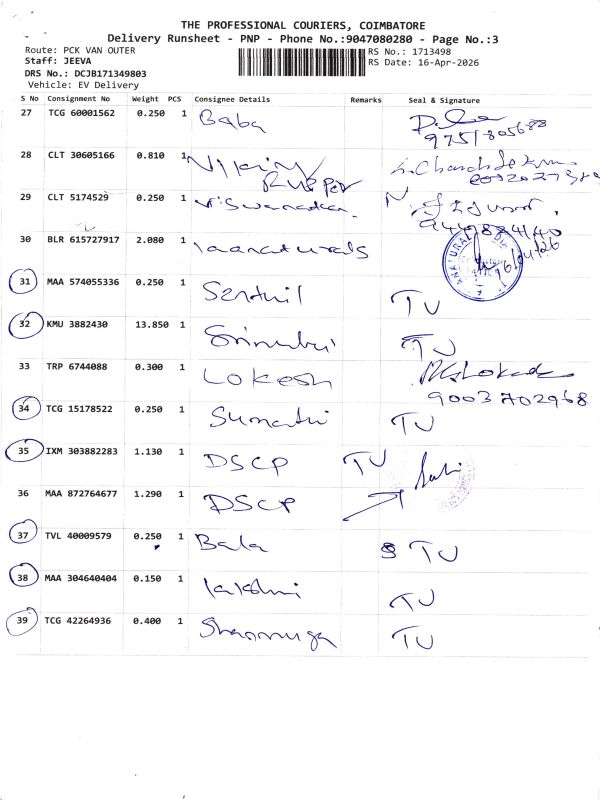 THE PROFESSIONAL COURIERS, COIMBATORE
Delivery Runsheet - PNP - Phone No.:9047080280 - Page No.:3
Route: PCK VAN OUTER
RS No.: 1713498
Staff: JEEVA
RS Date: 16-Apr-2026
DRS No.: DCJB171349803
Vehicle: EV Delivery
S No Consignment No Weight PCS Consignee Details Remarks Seal & Signature
27 TCG 60001562 0.250 1 Baba
28 CLT 30605166 0.810 1 Rubber
29 CLT 5174529 0.250 1 Viswanathan
30 BLR 615727917 2.080 1
16/04/26
31 MAA 574055336 0.250 1 Senthil TU
32 KMU 3882430 13.850 1 TU
33 TRP 6744088 0.300 1 Lokesh
9003702968
34 TCG 15178522 0.250 1 Sumathi TU
35 IXM 303882283 1.130 1 DSCP TU
36 MAA 872764677 1.290 1 DSCP
37 TVL 40009579 0.250 1 Bala TU
38 MAA 304640404 0.150 1 lakshmi TU
39 TCG 42264936 0.400 1 Shanmuga TU